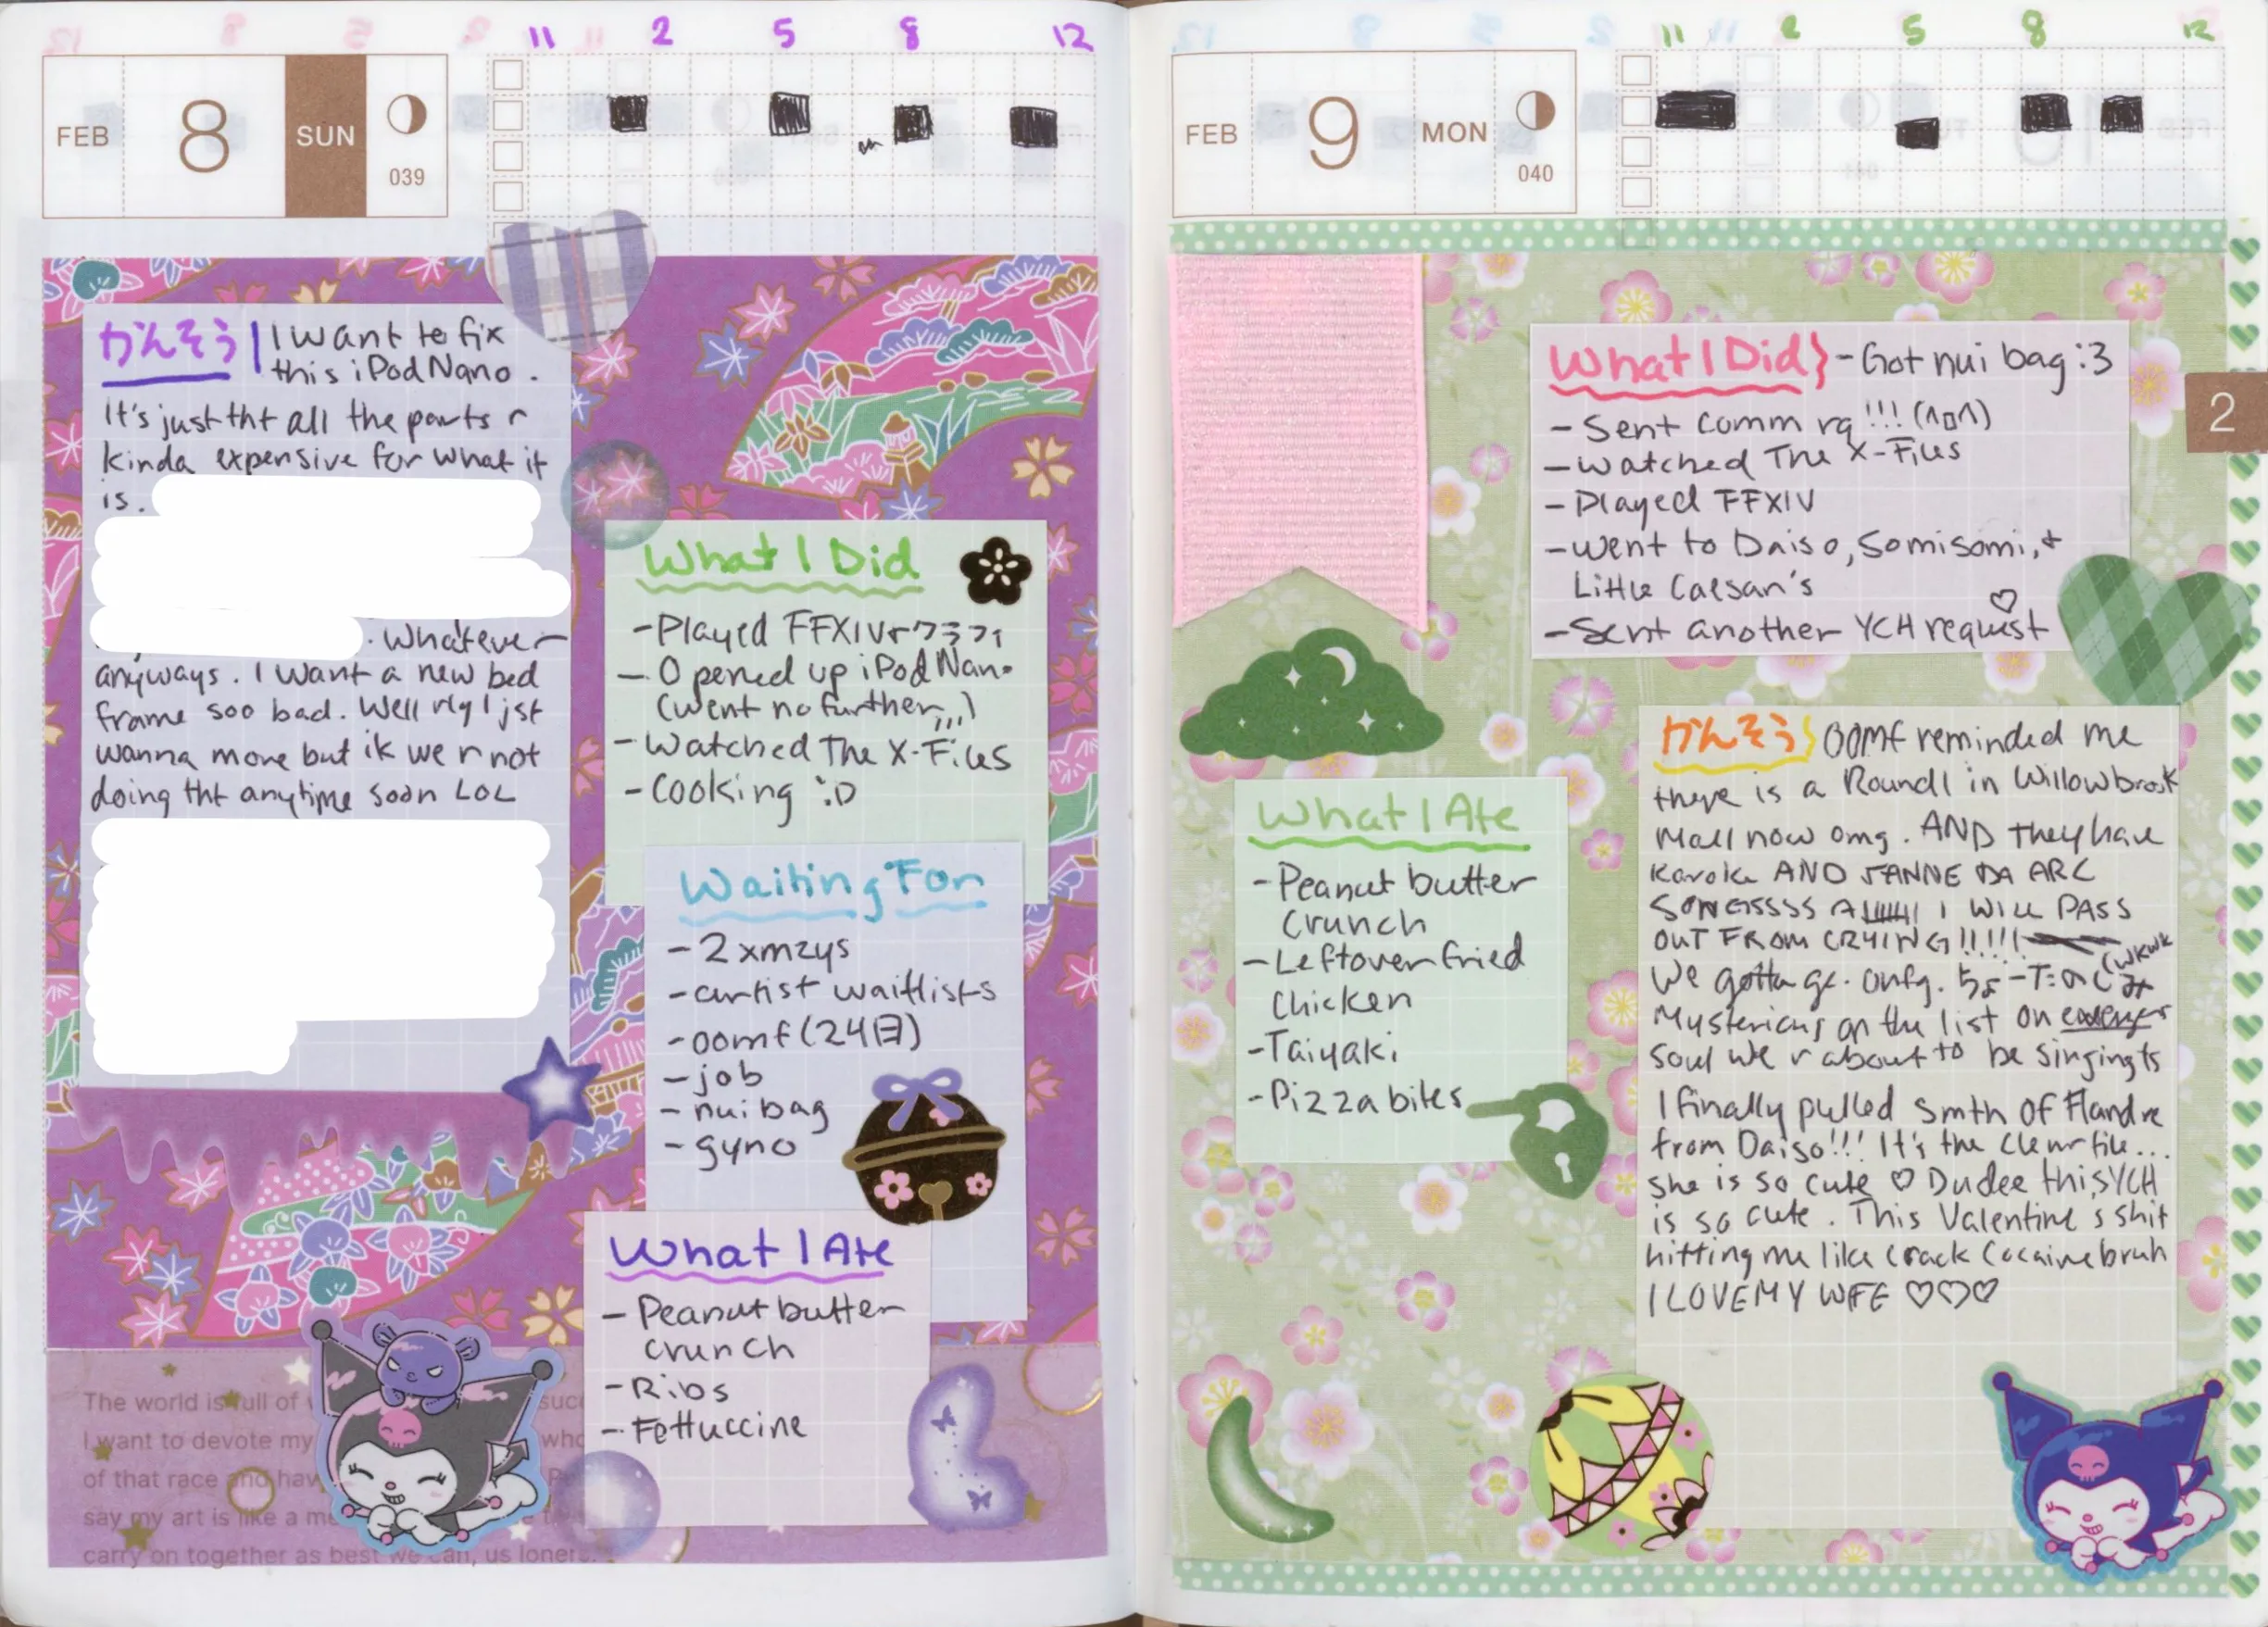 11 2 5 8 12
FEB 8 SUN
039
かんそう I want to fix
this iPod Nano.
It's just tht all the parts r
kinda expensive for what it
is.
. Whatever
anyways. I want a new bed
frame soo bad. Well rly I jst
wanna move but ik we r not
doing tht anytime soon LOL
What I Did
- Played FFXIV
- Opened up iPod Nano
(went no further,,,)
- Watched The X-Files
- Cooking :D
Waiting For
- 2 xmzys
- artist waitlists
- oomf (24日)
- job
- nui bag
- gyno
What I Ate
- Peanut butter
crunch
- Ribs
- Fettuccine
The world is full of
I want to devote my
of that race and hav
say my art is like a me
carry on together as best we can, us loners.
11 2 5 8 12
FEB 9 MON
040
2
What I Did} - Got nui bag :3
- Sent comm rq !!! (^o^)
- Watched The X-Files
- Played FFXIV
- Went to Daiso, Somisomi, +
Little Caesar's
- Sent another YCH request ♡
What I Ate
- Peanut butter
Crunch
- Leftover fried
Chicken
- Taiyaki
- Pizza bites
かんそう} OOMF reminded me
there is a Round1 in Willowbrook
Mall now omg. AND they have
Karoke AND JANNE DA ARC
SONGSSSS I WILL PASS
OUT FROM CRYING!!!!!
We gotta go. omfg.
Mysterious on the list on
soul we r about to be singing ts
I finally pulled smth of Flandre
from Daiso!!! It's the clear file...
she is so cute ♡ Dudee this YCH
is so cute. This Valentine's shit
hitting me like crack cocaine bruh
I LOVE MY WIFE ♡♡♡